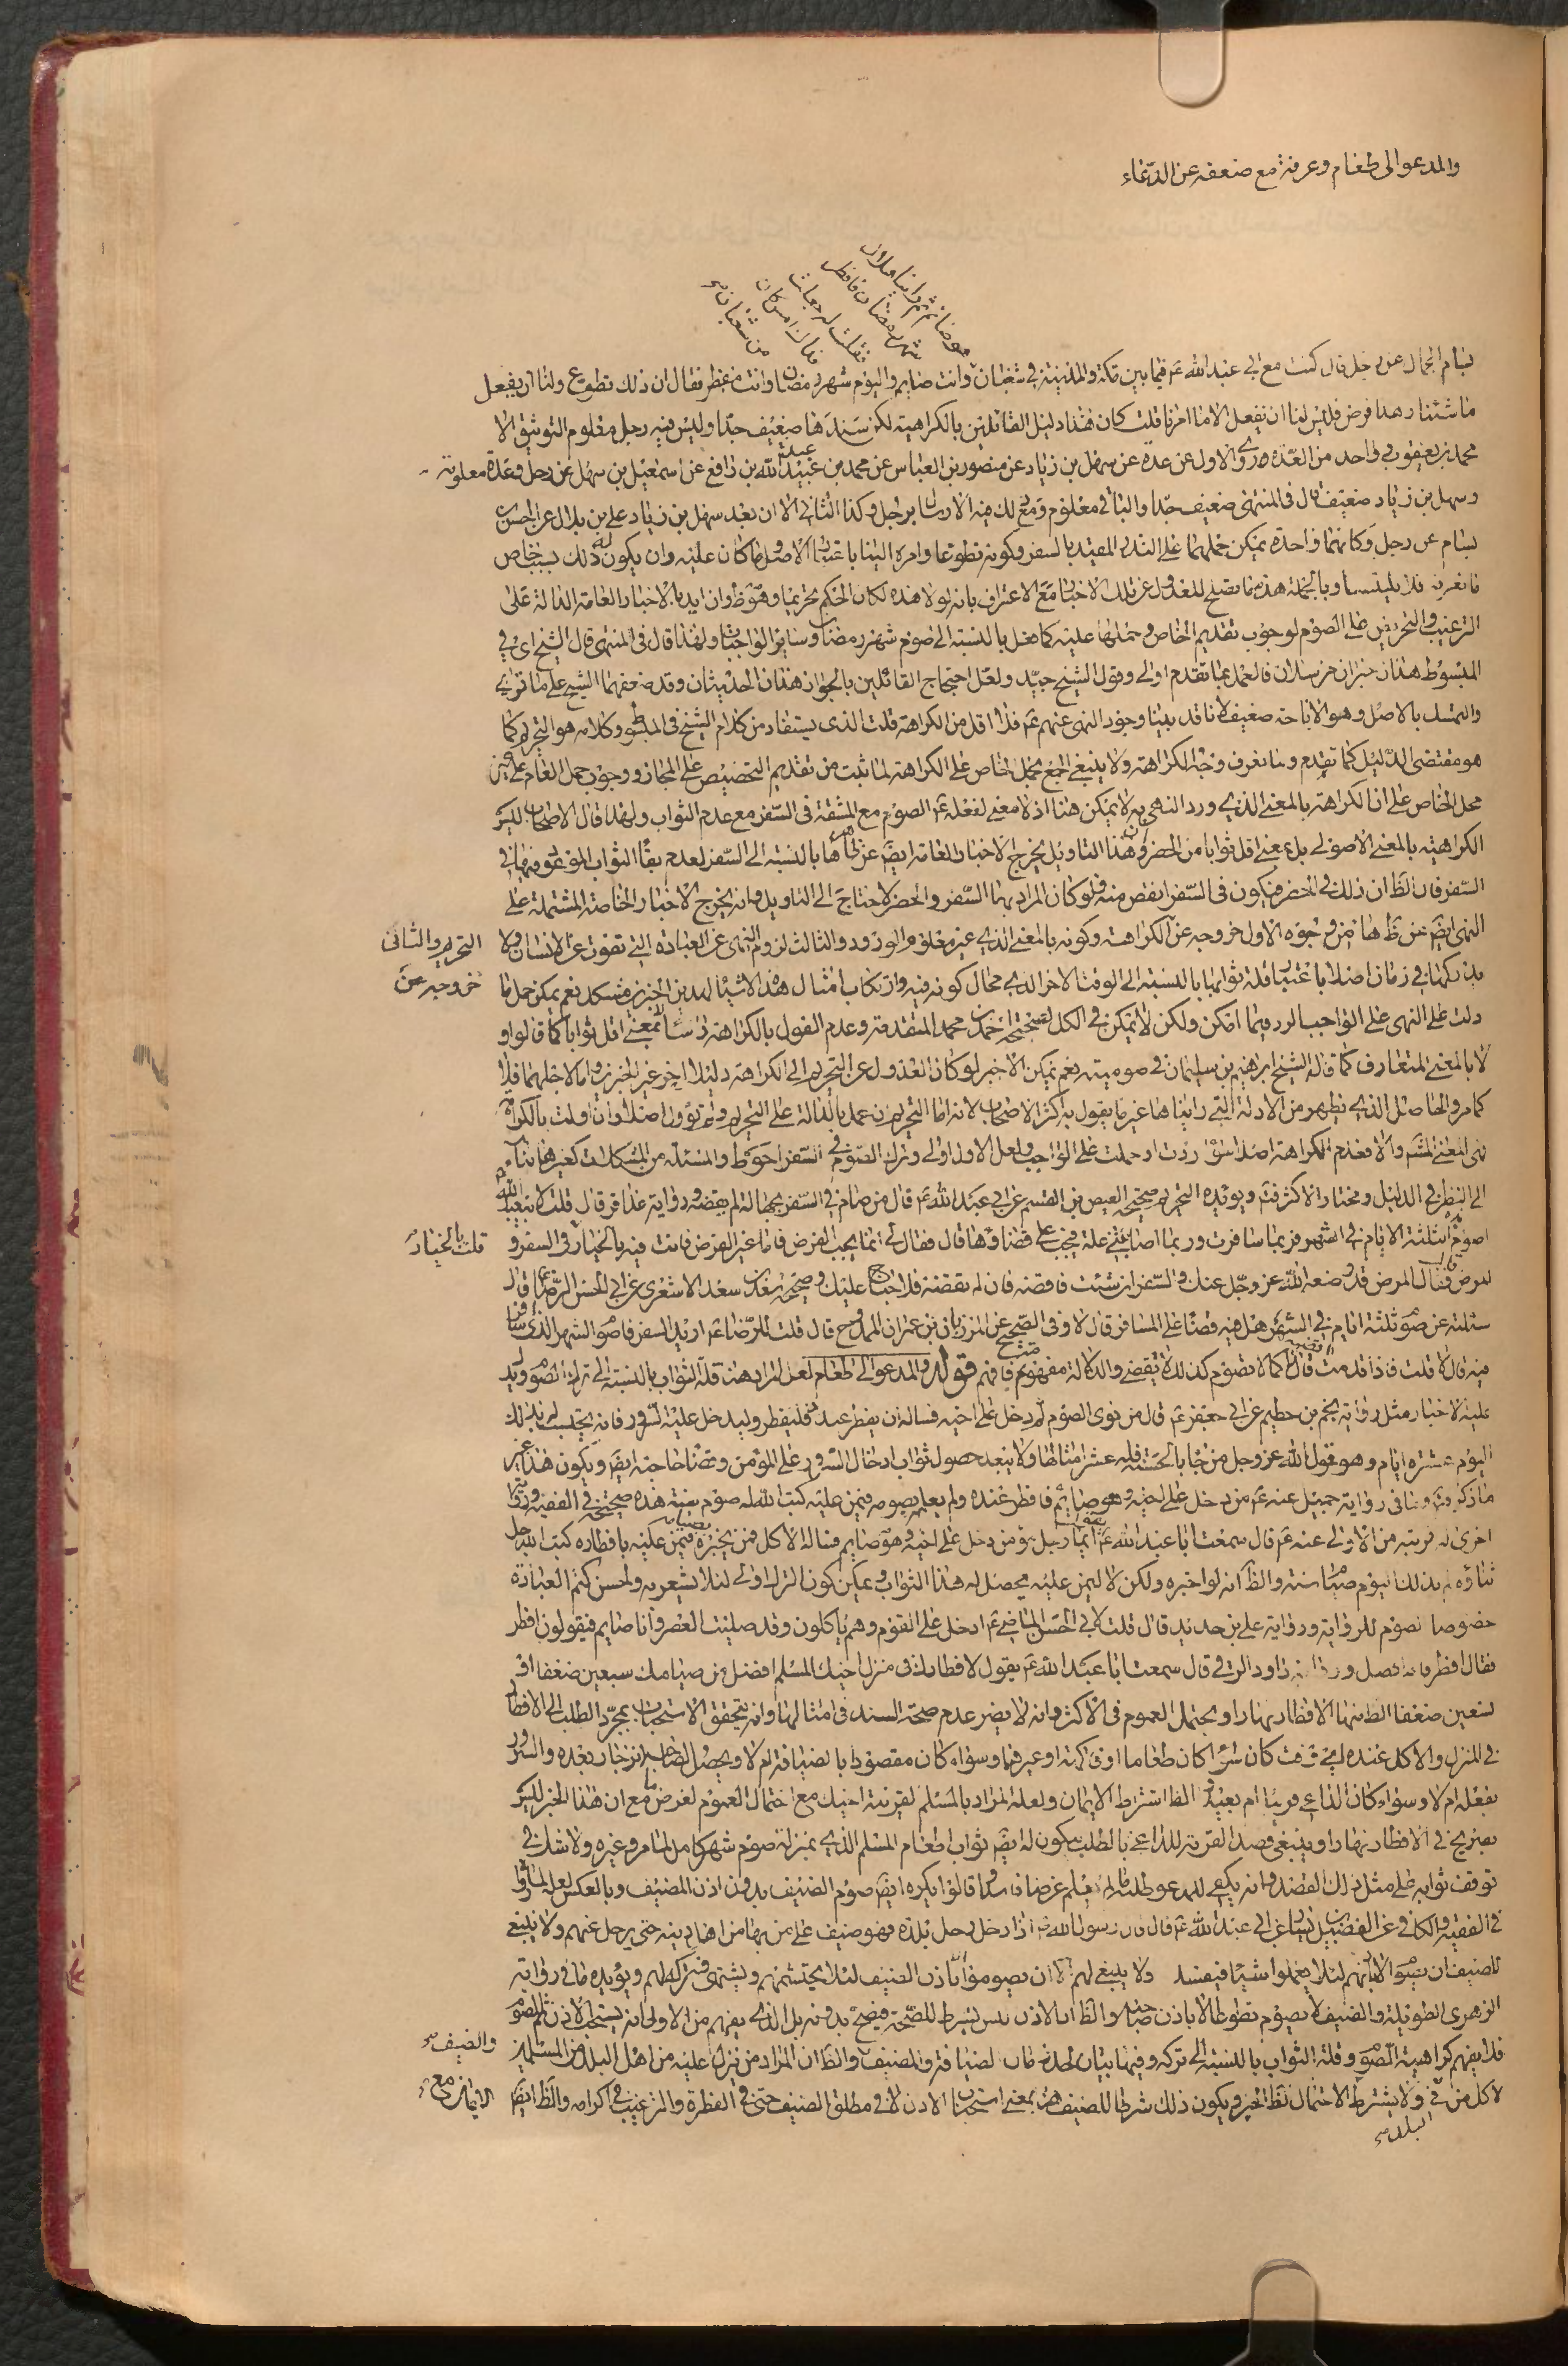 والمدعو الى طعام وعرفة مع ضعفه عن الدعاء
هو صائم ثم راينا هلال
شهر رمضان فافطر
فقلت له جعلت
فداك امس كان
من شعبان
بسام الجمال عن رجل قال كنت مع ابى عبد الله عم فيما بين مكة والمدينة فى شعبان وانت صايم واليوم شهر رمضان وانت مفطر فقال ان ذلك تطوع ولنا ان نفعل
ما شئنا وهذا فرض فليس لنا ان نفعل الا ما امرنا قلت كان هذا دليل القائلين بالكراهية لكن سندها ضعيف جدا وليس فيه رجل معلوم التوثيق الا
محمد بن يعقوب وواحد من العدة والاول عن عدة عن سهل بن زياد عن منصور بن العباس عن محمد بن عبد الله بن رافع عن اسمعيل بن سهل عن رجل وعدة معلومة
وسهل بن زياد ضعيف قال فى المنتهى ضعيف جدا والباقى معلوم ومع ذلك فيه الارسال برجل وكذا الثانى الا ان بعد سهل بن زياد على بن بلال عن الحسن بن
بسام عن رجل وكانهما واحدة يمكن حملهما على النذر المقيد بالسفر وكونه تطوعا وامره الينا باعتبار الاصل وما كان عليه وان يكون له ذلك بسبب خاص
ما نعرفه وبالجملة هذه ما تصلح للعدول عن تلك الاخبار مع الاعتراف بانه لولا هذه لكان الحكم تحريما وهو ظ وان ايد بالاخبار العامة الدالة على
الترغيب والتحريص على الصوم لوجوب تقديم الخاص وحملها عليه كما فعل بالنسبة الى صوم شهر رمضان وساير الواجبات ولهذا قال فى المنتهى قال الشيخ اى فى
المبسوط هذان خبران مرسلان فالعمل بما تقدم اولى وقول الشيخ جيد ولعل احتجاج القائلين بالجواز هذان الحديثان وقد ضعفهما الشيخ على ما ترى
والتمسك بالاصل وهو الاباحة ضعيف لانا قد بينا وجود النهى عنهم عم فلا اقل من الكراهة قلت الذى يستفاد من كلام الشيخ فى المبسوط وكلامه هو التحريم كما
هو مقتضى الدليل كما تقدم وما نعرف وجه الكراهة ولا ينبغى الجمع بحمل الخاص على الكراهة لما ثبت من تقديم التخصيص على المجاز ووجوب حمل العام على غير
محل الخاص على ان الكراهة بالمعنى الذى ورد النهى به لا يمكن هنا اذ لا معنى لفعله عم الصوم مع المشقة فى السفر مع عدم الثواب ولهذا قال الاصحاب ليس
الكراهية بالمعنى الاصولى بل بمعنى اقل ثوابا من الحضر وهذا التاويل يخرج الاخبار العامة ايضا عن ظاهرها بالنسبة الى السفر لعدم بقاء الثواب الموعود فيها فى
السفر فان الظ ان ذلك فى الحضر فيكون فى السفر انقص منه فلو كان المراد بها السفر والحضر لاحتاج الى التاويل وانه يخرج الاخبار الخاصة المشتملة على
النهى ايضا عن ظاهرها من وجوه الاول خروجه عن الكراهة وكونه بالمعنى الذى غير معلوم الورود والثالث لزوم النهى عن العبادة التى تفوت عن الانسان ولا
التحريم والثانى
خروجه عن
يدركها فى زمان اصلا باعتبار قلة ثوابها بالنسبة الى الوقت الاخر الذى محال كونه فيه وارتكاب امثال هذه الاشياء لهذين الخبرين مشكل نعم يمكن حمل ما
دلت على النهى على الواجب الرد فيما امكن ولكن لا يمكن فى الكل لصحيحة احمد بن محمد المتقدمة وعدم القول بالكراهة راسا بمعنى اقل ثوابا كما قالوا و
لا بالمعنى المتعارف كما قاله الشيخ ابراهيم بن سليمان فى صوميته نعم يمكن الاخير لو كان للعدول عن التحريم الى الكراهة دليلا اخر غير الخبرين واما لاجلهما فلا
كما مر والحاصل الذى يظهر من الادلة التى رايناها غير ما يقول به اكثر الاصحاب لانه اما التحريم ان عمل بالدالة على التحريم ولم تؤول اصلا وان اولت بالكراهة
فهى المعنى المش والا فعدم الكراهة اصلا سواء ردت او حملت على الواجب ولعل الاول اولى وترك الصوم فى السفر احوط والمسئلة من المشكلات كغيرها بناء
الى النظر فى الدليل ومختار الاكثر فت ويؤيده التحريم صحيحة العيص بن القسم عن ابى عبد الله عم قال من صام فى السفر بجهالة لم يقضه ورواية عذافر قال قلت لابى عبد الله
اصوم الثلثة الايام فى الشهر فربما سافرت وربما اصابتنى علة فيجب على قضاؤها قال فقال لى انما يجب الفرض فاما غير الفرض فانت فيه بالخيار فى السفر و
قلت بالخيار
المرض فقال المرض قد وضعه الله عز وجل عنك والسفر ان شئت فاقضه فان لم تقضه فلا جناح عليك وصحيحة سعد بن سعد الاشعرى عن ابى الحسن الرضا قال
سئلته عن صوم ثلثة ايام فى الشهر هل فيه قضاء على المسافر قال لا وفى الصحيح عن المرزبان بن عمران الممدوح قال قلت للرضا عم اريد السفر فاصوم الشهر الذى اسافر
فيه قال لا قلت فاذا قدمت قال كما لا تصوم كذلك لا تقضى والدلالة مفهوم فافهم قوله والمدعو الى طعام لعل المراد هنا قلة الثواب بالنسبة الى ترك الصوم ويدل
عليه الاخبار مثل رواية نجم بن حطيم عن ابى جعفر عم قال من نوى الصوم ثم دخل على اخيه فساله ان يفطر عنده فليفطر وليدخل عليه السرور فانه يحتسب له بذلك
اليوم عشرة ايام وهو قول الله عز وجل من جاء بالحسنة فله عشر امثالها ولا يبعد حصول ثواب ادخال السرور على المؤمن وقضاء حاجته ايضا ويكون هذا غير
ما ذكر وما فى رواية جميل عنه عم من دخل على اخيه وهو صايم فافطر عنده ولم يعلمه بصومه فيمن عليه كتب الله له صوم سنة هذه صحيحة فى الفقيه ورواية
اخرى له قريبة من الاولى عنه عم قال سمعت ابا عبد الله عم يقول ايما رجل مؤمن دخل على اخيه وهو صايم فساله الاكل فلم يخبره بصيامه فيمن عليه بافطاره كتب الله جل
ثناؤه له بذلك اليوم صيام سنة والظ انه لو اخبره ولكن لا ليمن عليه يحصل له هذا الثواب ويمكن كون الترك اولى لئلا يشعر به ولحسن كتم العبادة
خصوصا الصوم للرواية ورواية على بن حديد قال قلت لابى الحسن الماضى عم ادخل على القوم وهم ياكلون وقد صليت العصر وانا صايم فيقولون افطر
فقال افطر فانه افضل ورواية داود الرقى قال سمعت ابا عبد الله عم يقول لافطارك فى منزل اخيك المسلم افضل من صيامك سبعين ضعفا او
تسعين ضعفا الظ منها الافطار نهارا ويحتمل العموم فى الاكثر وانه لا يضر عدم صحة السند فى امثالها وانه يتحقق الاستحباب بمجرد الطلب الى الافطار
فى المنزل والاكل عنده اى وقت كان سواء كان طعاما او فاكهة او غيرهما وسواء كان مقصودا بالضيافة ام لا ويحصل لصاحب المنزل جار بعده والسرور
بفعله ام لا وسواء كان الداعى قريبا ام بعيدا الظ اشتراط الايمان ولعله المراد بالمسلم لقرينة اخيك مع احتمال العموم لغرض ما مع ان هذا الخبر ليس
بصريح فى الافطار نهارا وينبغى قصد القربة للداعى بالطلب ليكون له ايضا ثواب اطعام المسلم الذى بمنزلة صوم شهر كامل لما مر وغيره ولا شك فى
توقف ثوابه على مثل ذلك القصد وانه يكفى للمدعو طلبه ما لم يعلم غرضا فاسدا قالوا يكره ايضا صوم الضيف بدون اذن المضيف وبالعكس لعله لما روى
فى الفقيه والكافى عن الفضيل بن يسار عن ابى عبد الله عم قال قال رسول الله ص اذا دخل رجل بلدة فهو ضيف على من بها من اهل دينه حتى يرحل عنهم ولا ينبغى
للضيف ان يصوم الا باذنهم لئلا يعملوا شيئا فيفسد ولا ينبغى لهم ان يصوموا الا باذن الضيف لئلا يحتشمهم ويشتهى فيتركه لهم ويؤيده ما فى رواية
الزهرى الطويلة والضيف لا يصوم تطوعا الا باذن صاحبه والظ ان الاذن ليس بشرط للصحة فيصح بدونه بل الذى يفهم من الاولى انه يستحب الاذن للصوم
فلا يفهم كراهية الصوم وقلة الثواب بالنسبة الى تركه وفيها بيان لحد الضيافة والمضيف والظ ان المراد من نزل عليه من اهل البلد من المسلمين
والضيف
لا كل من فى ولا يشترط الاحتمال لظ الخبر ويكون ذلك شرطا للضيف هنا بمعنى استحباب الاذن لا فى مطلق الضيف حتى فى الفطرة والترغيب فى اكرامه والظ ايضا
البلد